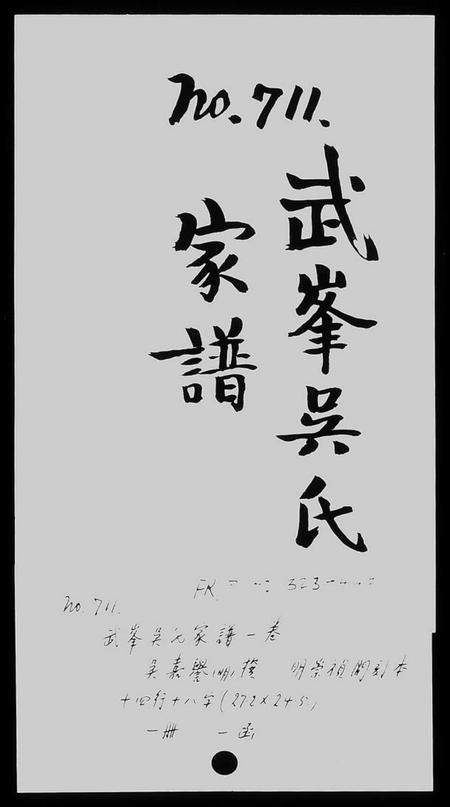 no. 711.
武峯吳氏
家譜
FK
no. 711.
武峯吳氏家譜一卷
吳嘉譽(明)撰 明崇禎間刻本
十四行十八字(27.2×24.5)
一冊 一函